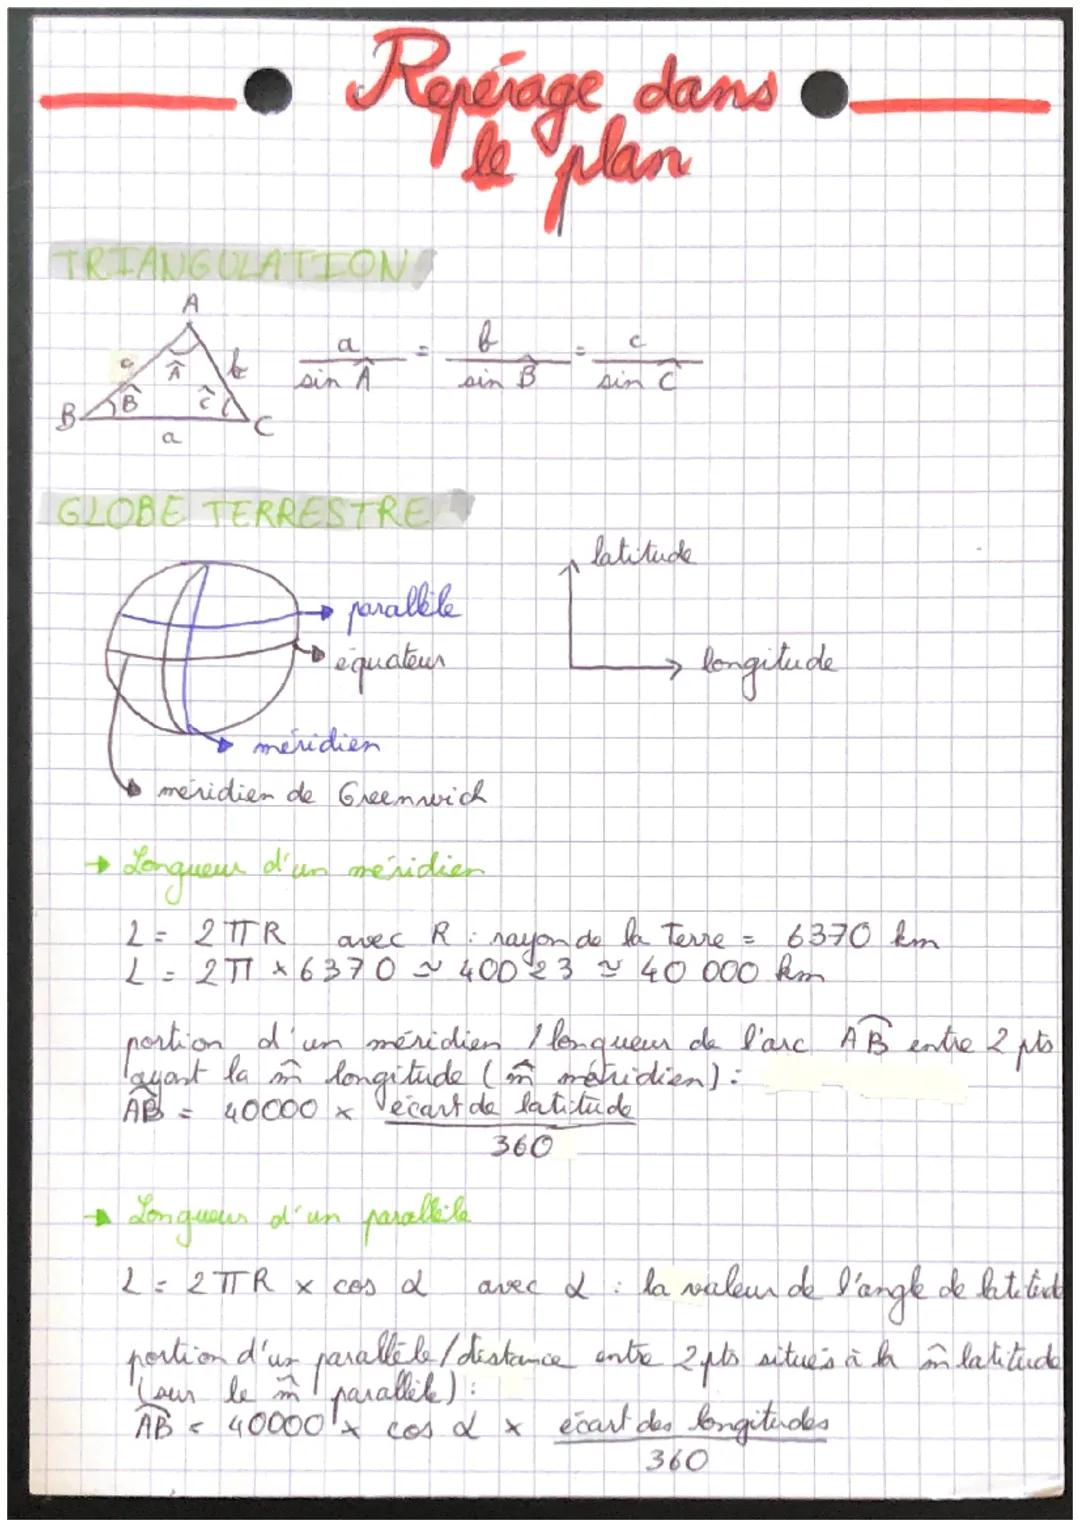 Repérage dans
le plan
TRIANGULATION
A
c Â b
B B̂ Ĉ C
a
a/sin Â = b/sin B̂ = c/sin Ĉ
GLOBE TERRESTRE
latitude
parallèle
équateur
longitude
méridien
méridien de Greenwich
→ Longueur d'un méridien
L = 2πR avec R : rayon de la Terre = 6370 km
L = 2π × 6370 ≃ 40023 ≃ 40 000 km
portion d'un méridien / longueur de l'arc AB entre 2 pts
ayant la m̂ longitude (m̂ méridien) :
AB = 40000 × écart de latitude
360
→ Longueur d'un parallèle
L = 2πR × cos α avec α : la valeur de l'angle de latitude
portion d'un parallèle / distance entre 2 pts situés à la m̂ latitude
(sur le m̂ parallèle) :
AB = 40000 × cos α × écart des longitudes
360